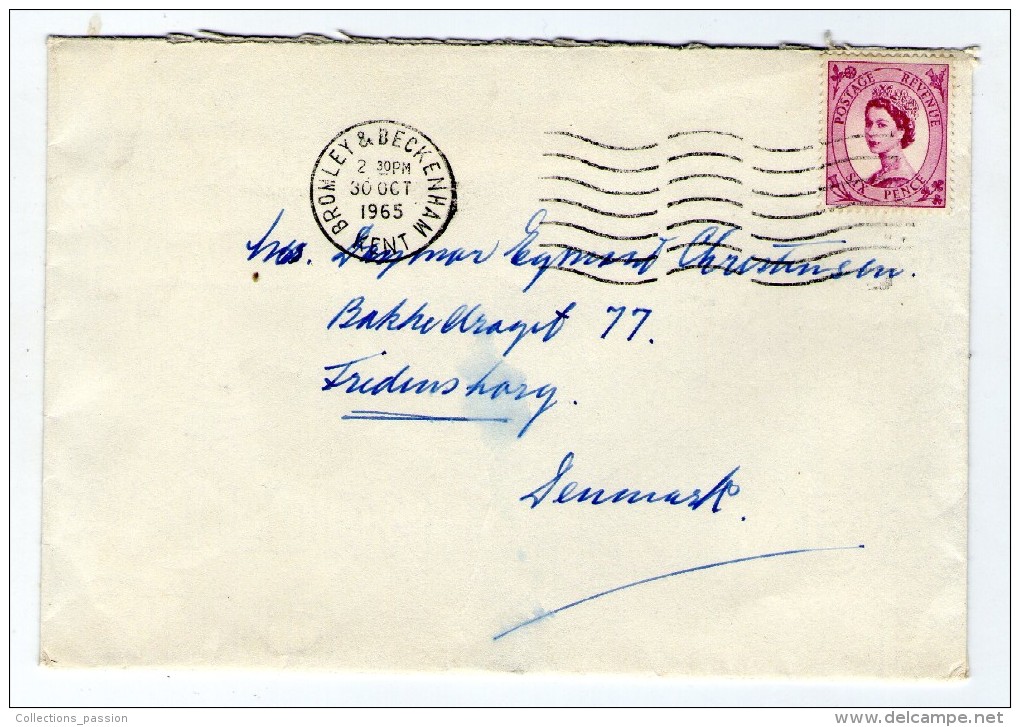 POSTAGE REVENUE
SIX PENCE
BROMLEY & BECKENHAM
2 30PM
30 OCT
1965
KENT
Mrs. Dagmar Egmond Christensen.
Bakkedraget 77.
Fredensborg.
Denmark.
Collections_passion
www.delcampe.net